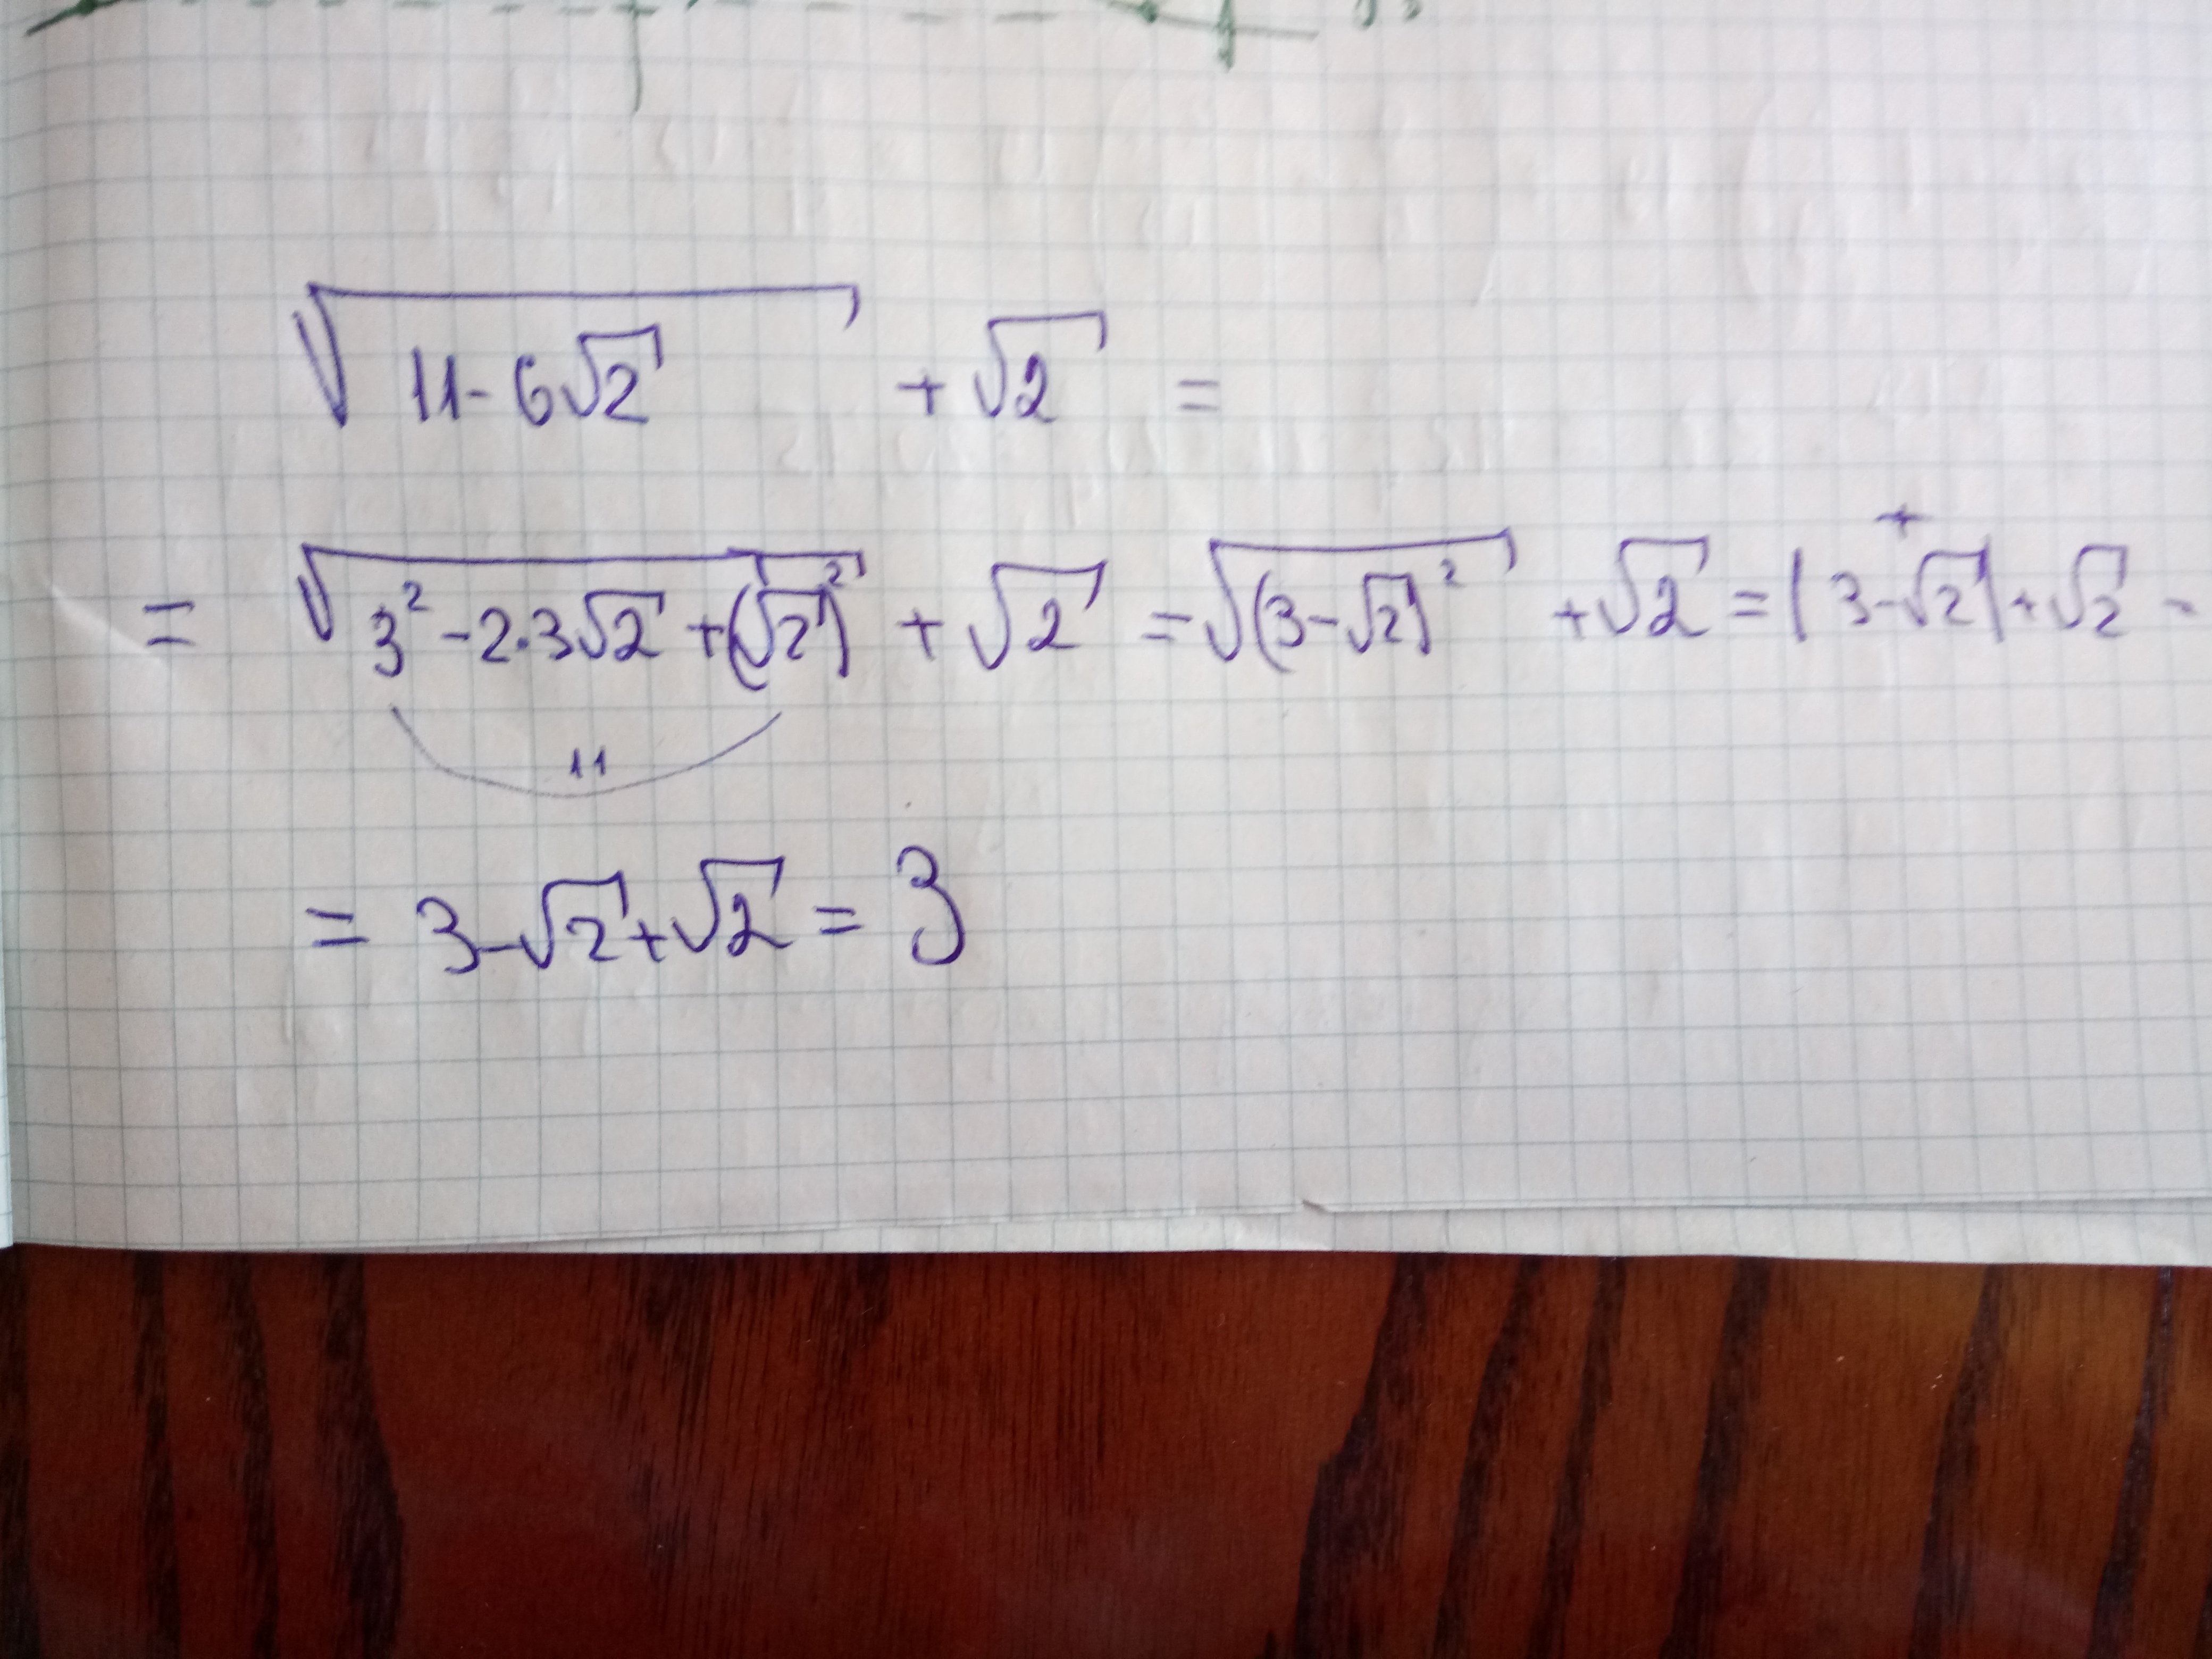 √(11-6√2) + √2 =
= √(3²-2·3√2+(√2)²) + √2 = √((3-√2)²) + √2 = |3-√2|+√2 =
+
11
= 3-√2+√2 = 3